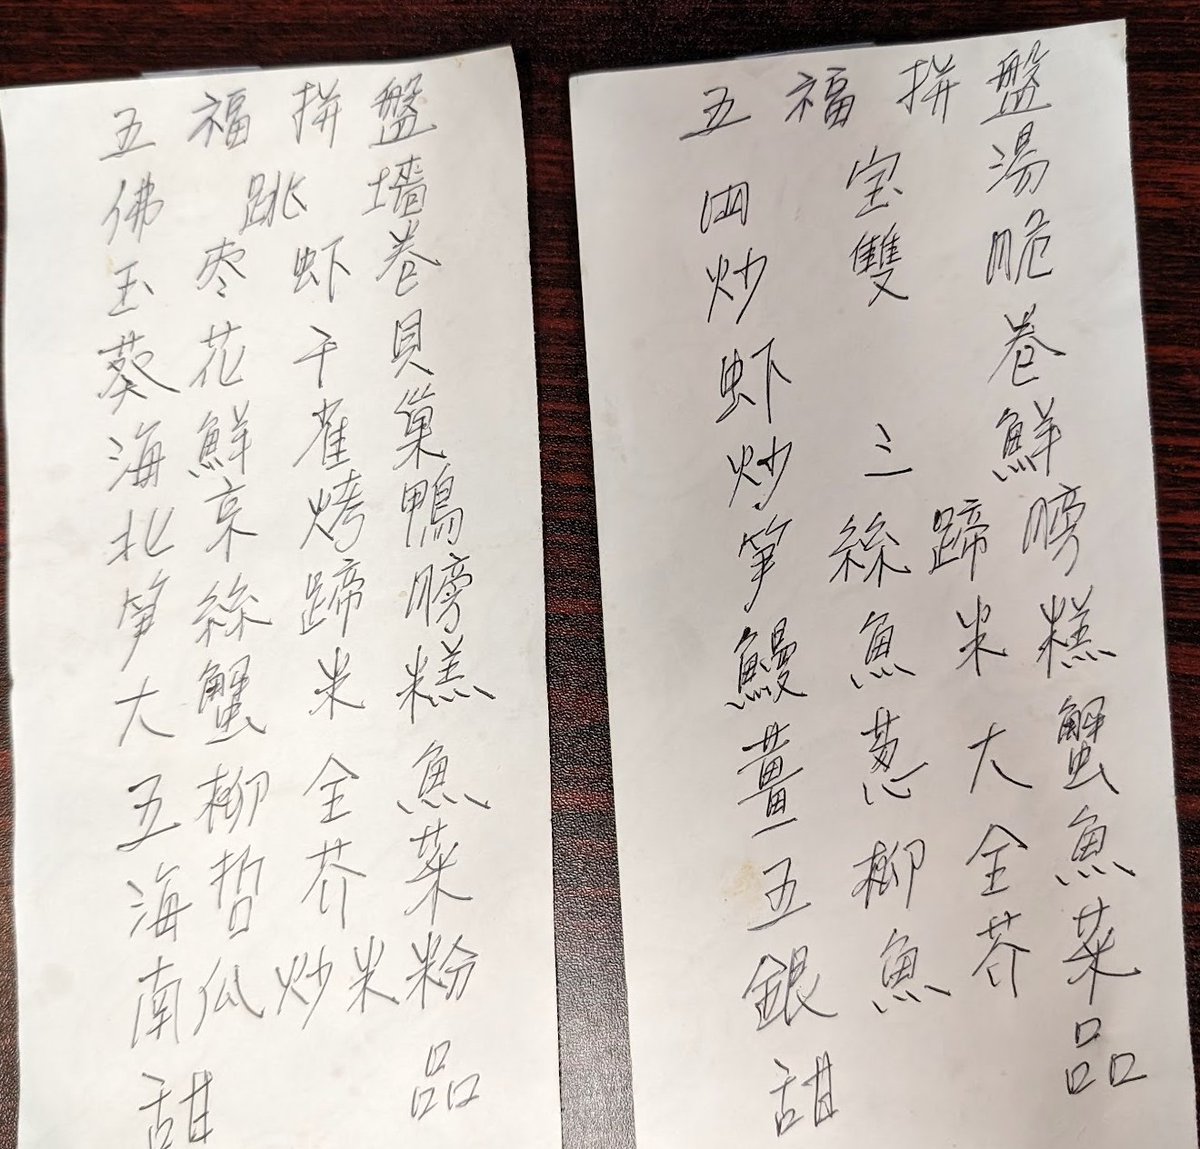 五福拼盤
佛跳墻
玉枣虾卷
葵花干貝
海鮮雀巢
北京烤鴨
笋絲蹄膀
大蟹米糕
五柳全魚
海哲芥菜
南瓜炒米粉
甜品
五福拼盤
四宝湯
炒雙脆
虾卷
炒三鮮
笋絲蹄膀
鰻魚米糕
薑葱大蟹
五柳全魚
銀魚芥菜
甜品